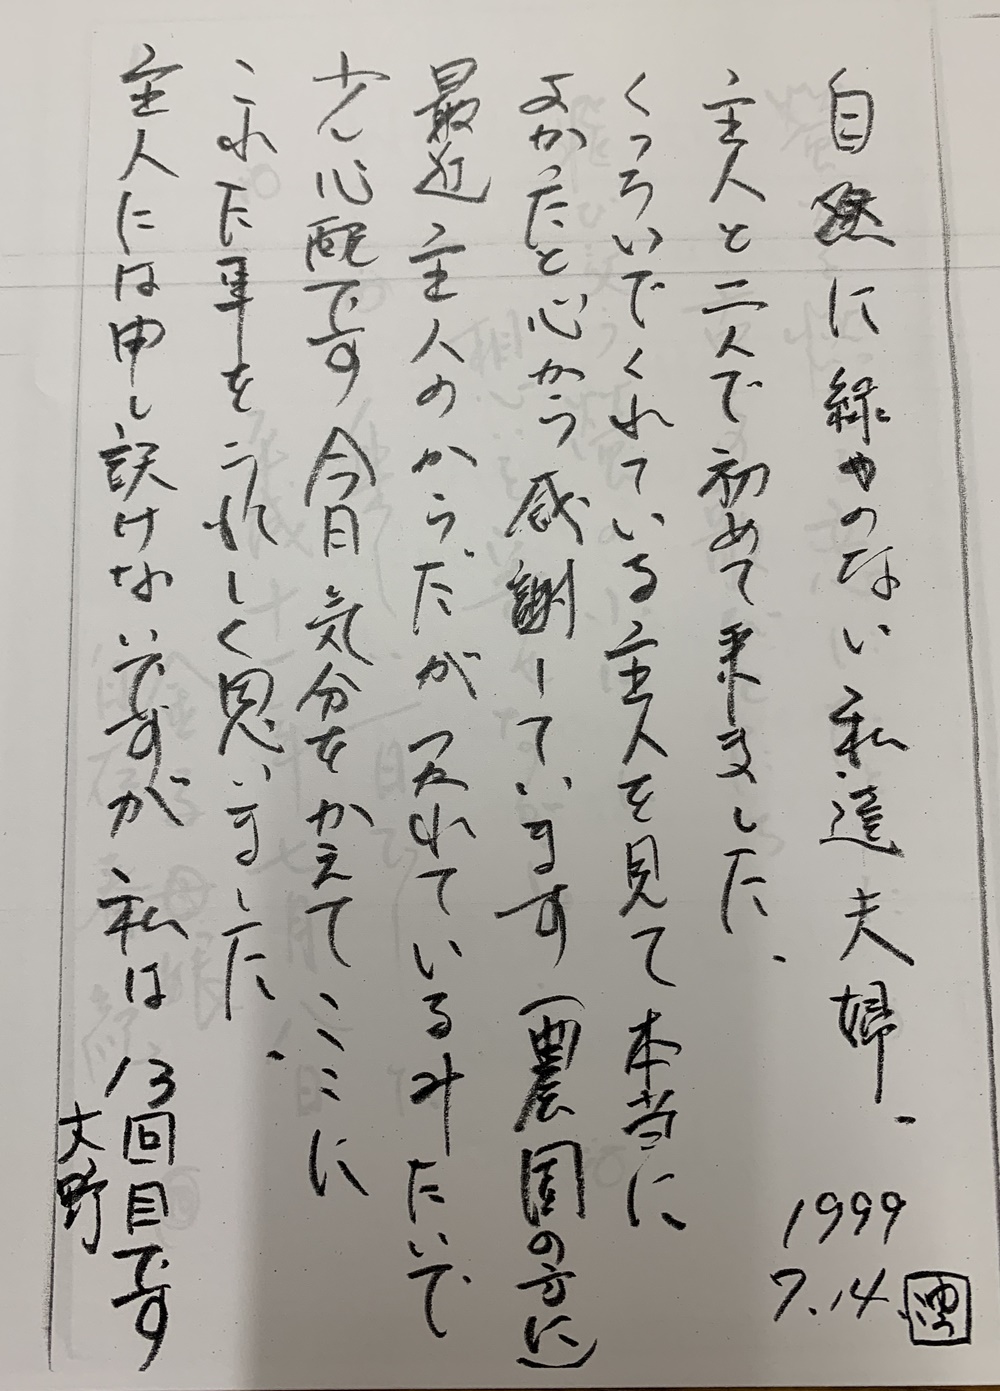 自然に縁のない私達夫婦、
主人と二人で初めて来ました、
くつろいでくれている主人を見て本当に
よかったと心から感謝しています(農園の方に)
最近主人のからだが疲れているみたいで
少し心配です今日気分をかえてここに
これた事をうれしく思いました、
主人には申し訳けないですが私は13回目です
大野
1999
7.14